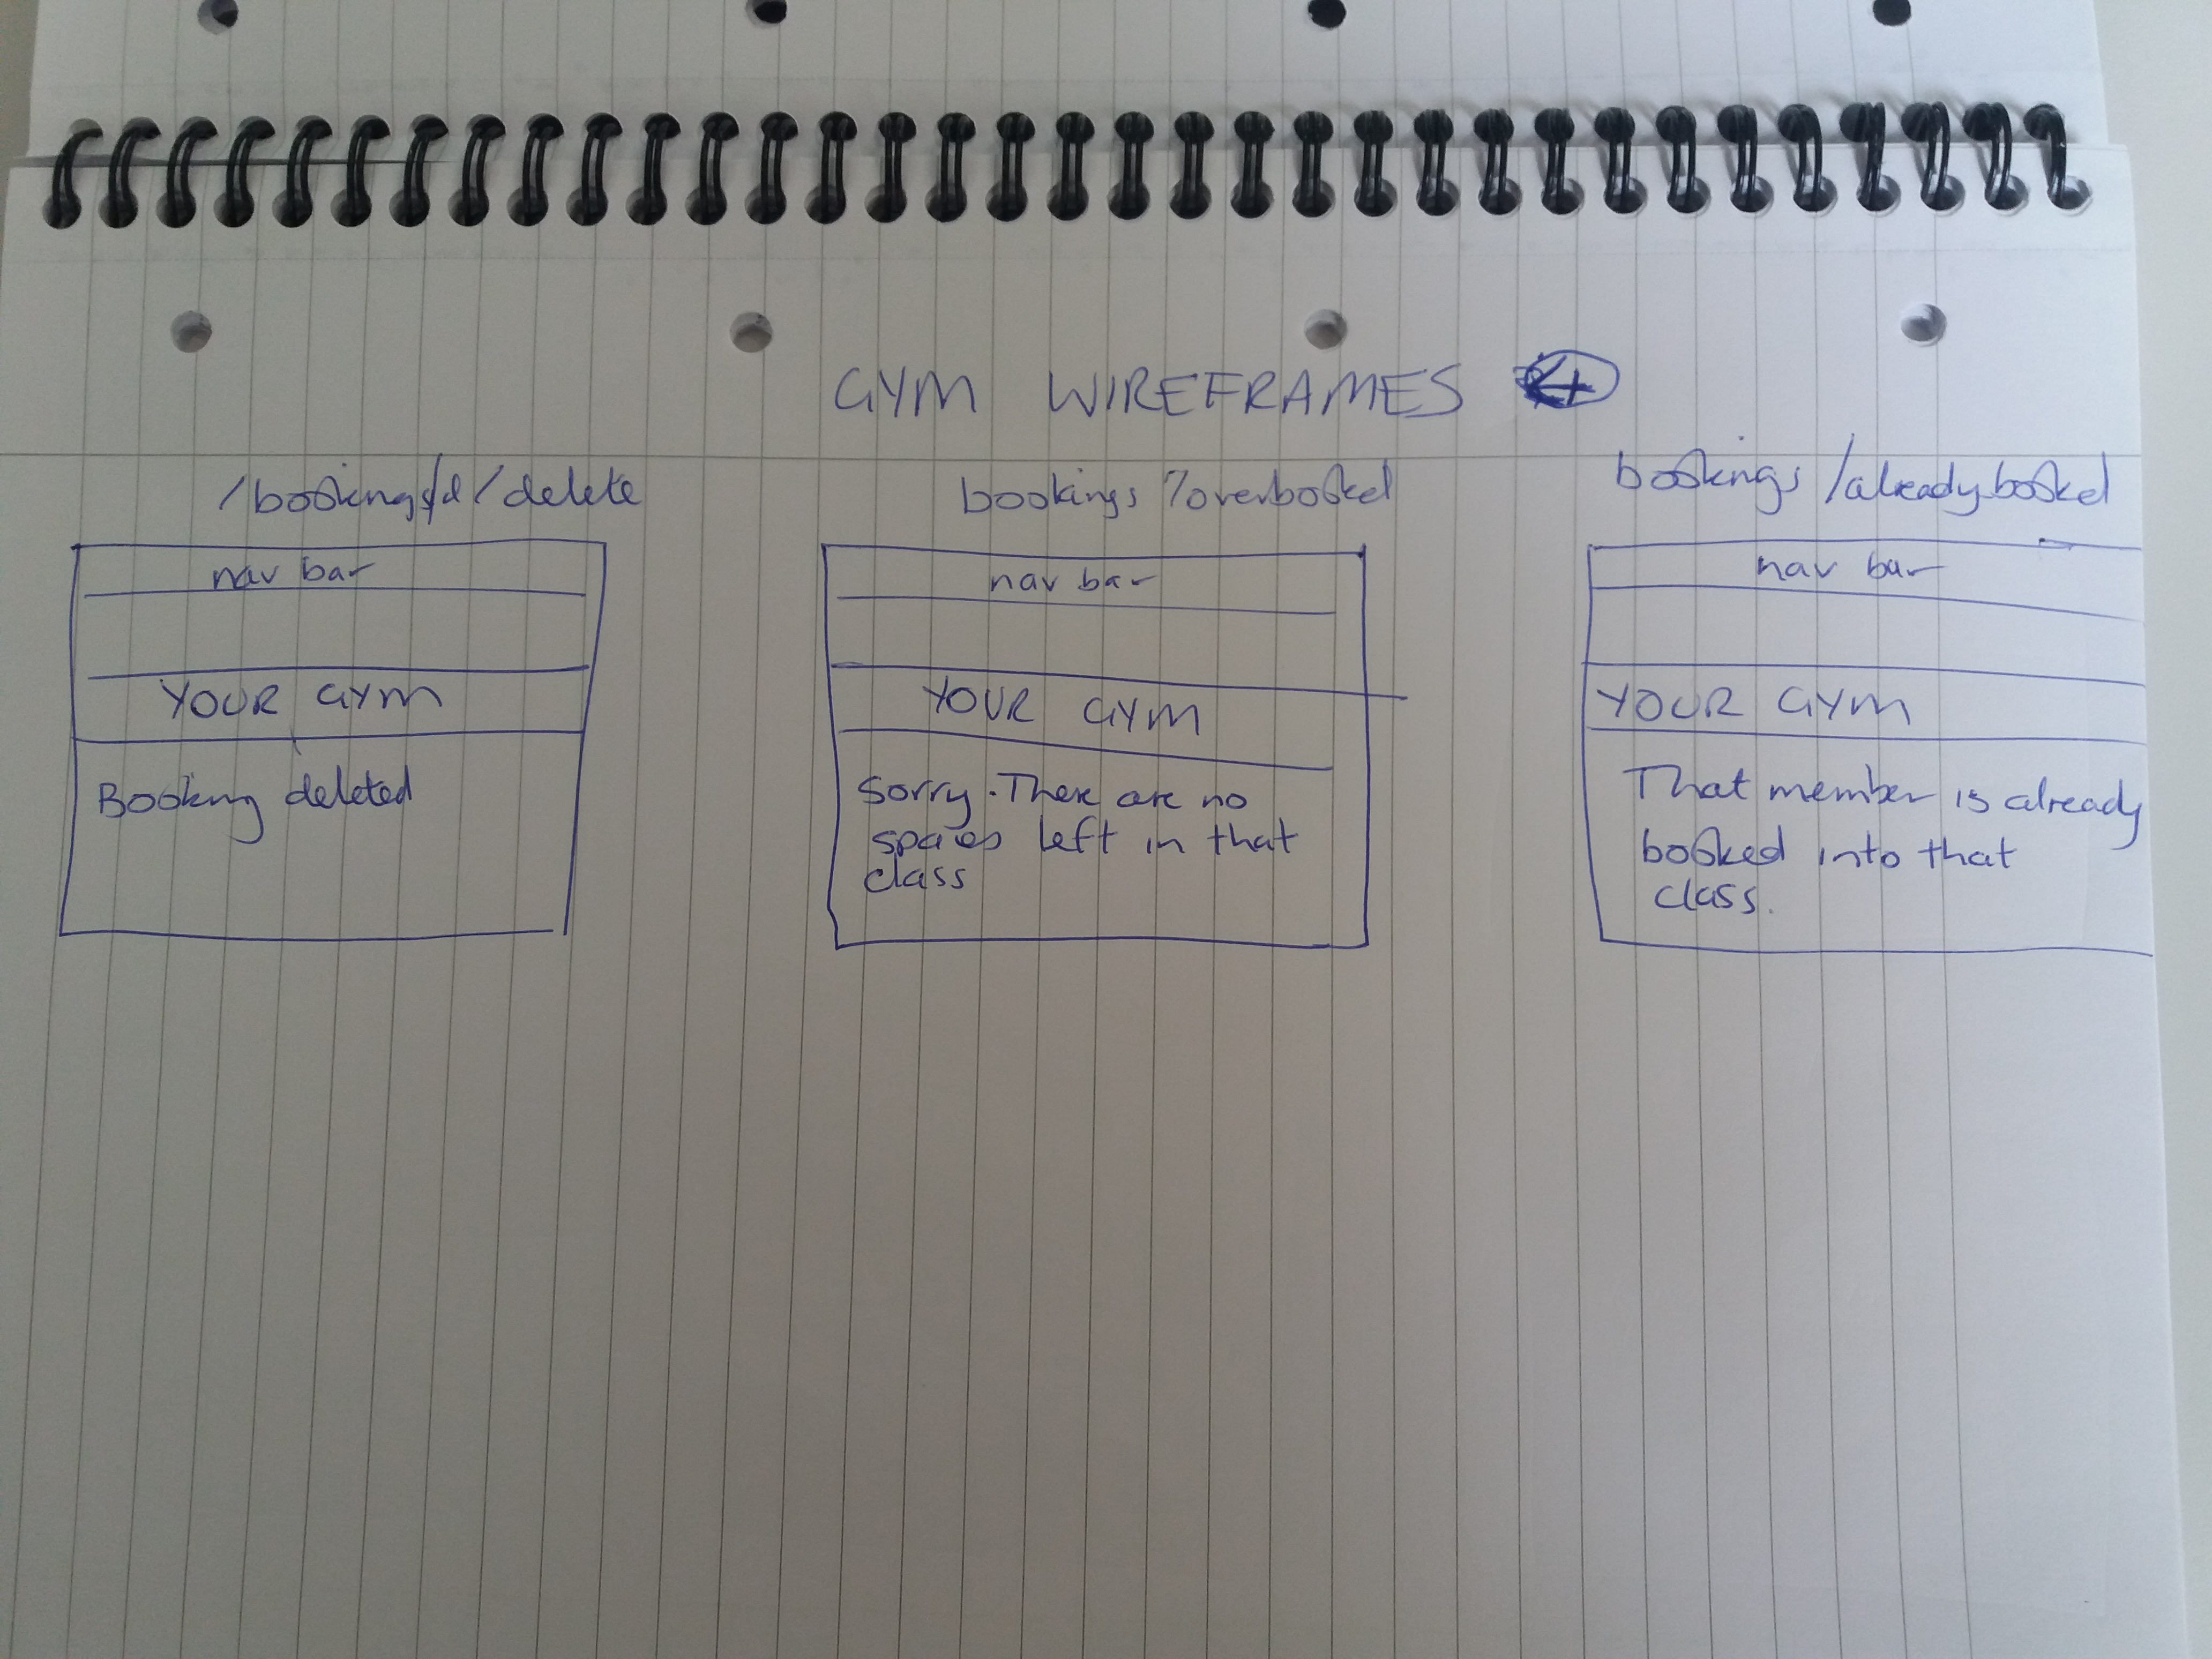 GYM WIREFRAMES 4
/bookings/id/delete
nav bar
YOUR GYM
Booking deleted
bookings /overbooked
nav bar
YOUR GYM
Sorry. There are no
spaces left in that
class
bookings /already_booked
nav bar
YOUR GYM
That member is already
booked into that
class.